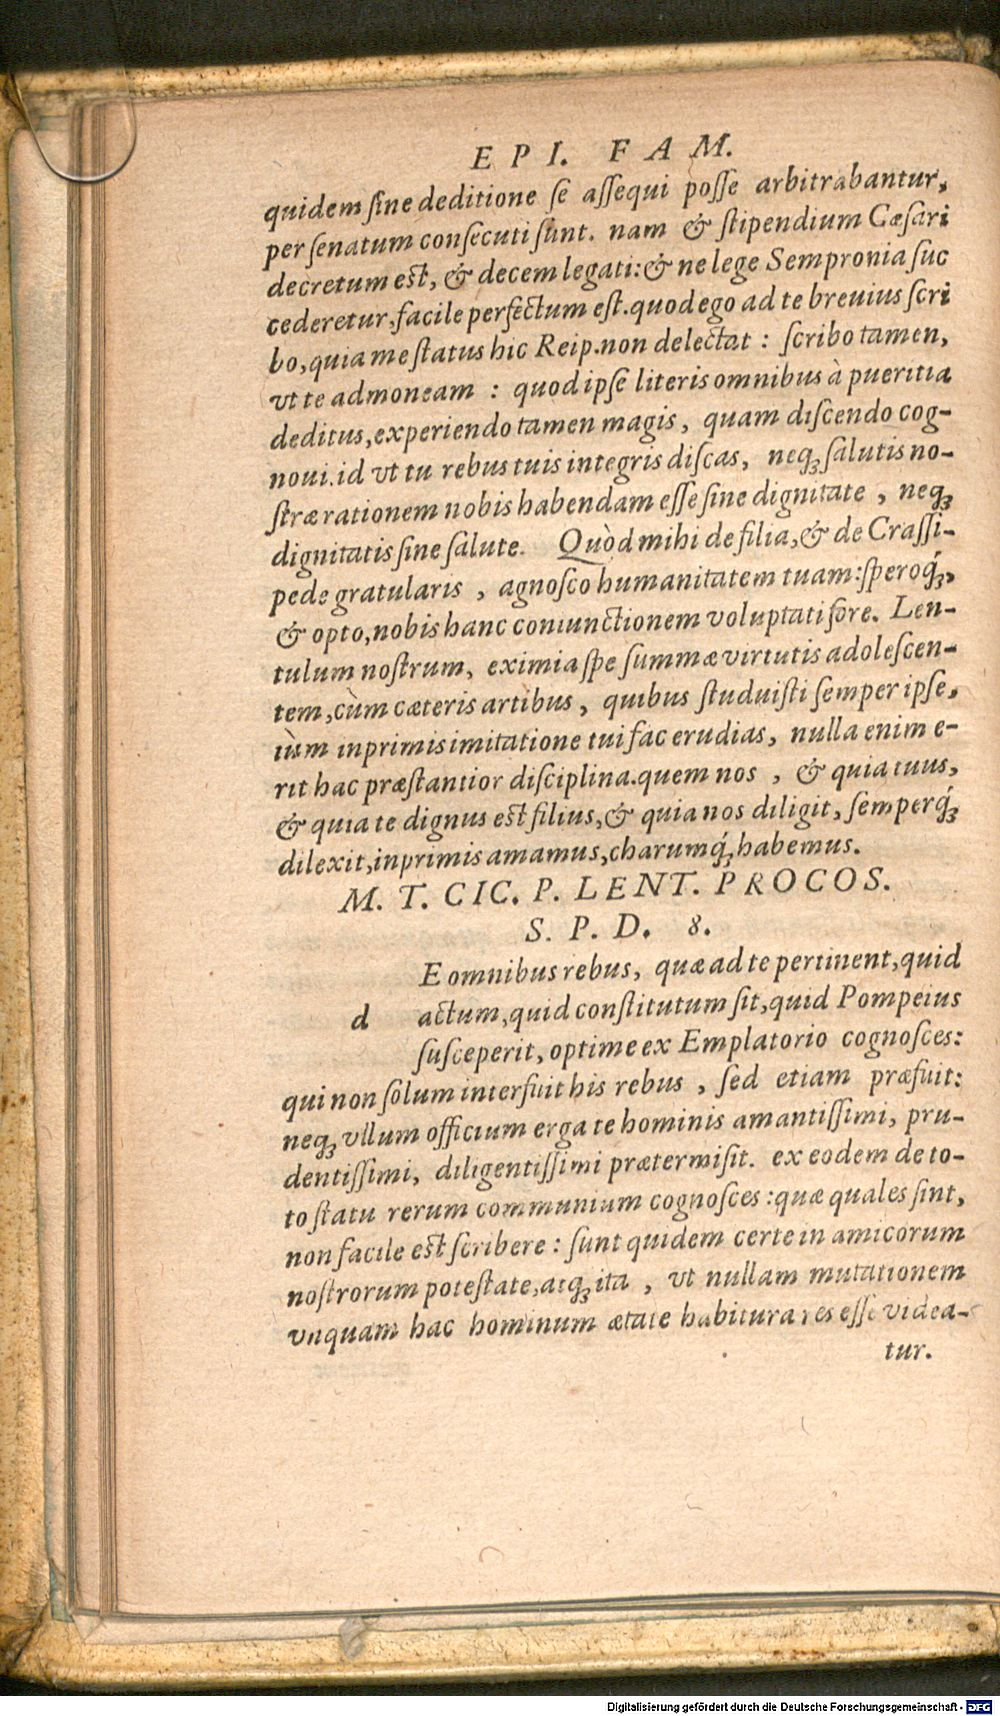 EPI. FAM.
quidem sine deditione se assequi posse arbitrabantur,
per senatum consecuti sunt. nam & stipendium Cæsari
decretum est, & decem legati: & ne lege Sempronia suc
cederetur, facile perfectum est. quod ego ad te breuius scri
bo, quia me status hic Reip. non delectat : scribo tamen,
vt te admoneam : quod ipse literis omnibus à pueritia
deditus, experiendo tamen magis, quam discendo cog-
noui. id vt tu rebus tuis integris discas, neq; salutis no-
stræ rationem nobis habendam esse sine dignitate , neq;
dignitatis sine salute. Quòd mihi de filia, & de Crassi-
pede gratularis , agnosco humanitatem tuam: speroq́;,
& opto, nobis hanc coniunctionem voluptati fore. Len-
tulum nostrum, eximia spe summæ virtutis adolescen-
tem, cùm cæteris artibus, quibus studuisti semper ipse,
tùm inprimis imitatione tui fac erudias, nulla enim e-
rit hac præstantior disciplina. quem nos , & quia tuus,
& quia te dignus est filius, & quia nos diligit, semperq́;
dilexit, inprimis amamus, charumq́; habemus.
M. T. CIC. P. LENT. PROCOS.
S. P. D. 8.
E omnibus rebus, quæ ad te pertinent, quid
d actum, quid constitutum sit, quid Pompeius
susceperit, optime ex Emplatorio cognosces:
qui non solum interfuit his rebus , sed etiam præfuit:
neq; vllum officium erga te hominis amantissimi, pru-
dentissimi, diligentissimi prætermisit. ex eodem de to-
to statu rerum communium cognosces : quæ quales sint,
non facile est scribere : sunt quidem certe in amicorum
nostrorum potestate, atq; ita , vt nullam mutationem
vnquam hac hominum ætate habitura res esse videa-
tur.
Digitalisierung gefördert durch die Deutsche Forschungsgemeinschaft - DFG